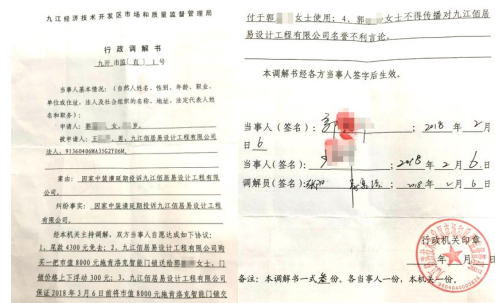 九江经济技术开发区市场和质量监督管理局
行政调解书
九开市监[ ] 1号
当事人基本情况:(自然人姓名、性别、年龄、职业、
单位或住址,法人及社会组织的名称、地址,法定代表人姓
名和职务):
申请人:郭 女,
被申请人:王 ,男,九江佰居易设计工程有限公司
法人,91360406MA35G2Y06M。
案由:因家中装潢延期投诉九江佰居易设计工程有限
公司。
纠纷事实:因家中装潢延期投诉九江佰居易设计工程
有限公司。
经本机关主持调解,双方当事人自愿达成如下协议:
1、尾款4300元免去;2、九江佰居易设计工程有限公司购
买一把市值8000元施肯洛克智能门锁送给郭 女士,门
锁价格上下浮动300元;3、九江佰居易设计工程有限公司
保证2018年3月6日前将市值8000元施肯洛克智能门锁交
付于郭 女士使用;4、郭 女士不得传播对九江佰居
易设计工程有限公司名誉不利言论。
本调解书经各方当事人签字后生效。
当事人(签名): ;2018年2月
6日
当事人(签名): ;2018年2月6日
调解员(签名): ;2018年2月6日
行政机关印章
年 月 日
备注:本调解书一式叁份,各当事人一份,本机关一份。